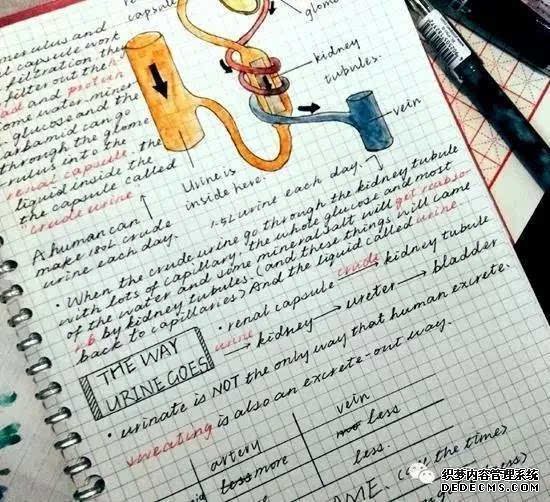 renal
capsule
glome
merulus and
capsule work
filtration, the
filter out the
and protein
some water, miner
glucose and the
carbamid can go
through the glome
rulus into the
renal capsule, the
liquid inside the
the capsule called
"crude urine
kidney
tubules.
vein
Urine is
inside here.
A human can
make 180L crude
urine each day.
1.5L urine each day.
· When the crude urine go through the kidney tubule
with lots of capillary, the whole glucose and most
of the water and some mineral salt will get reabso-
rb by kidney tubules. (and these things will came
back to capillaries) And the liquid called urine.
· renal capsule crude→ kidney tubule
urine→ kidney → ureter → bladder
THE WAY
URINE GOES
· urinate is NOT the only way that human excrete.
sweating is also an excrete-out way.
artery vein
less more less
less.
ME. (all the time)
织梦内容管理系统
DEDECMS.COM